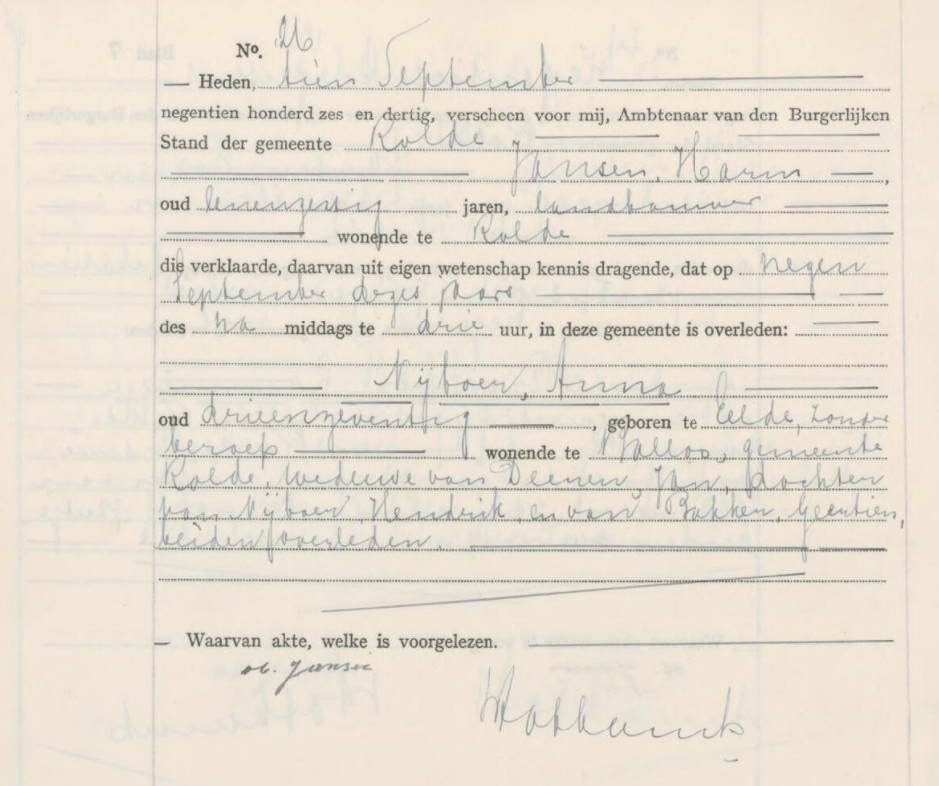 No. 26
Heden, tien September
negentien honderd zes en dertig, verscheen voor mij, Ambtenaar van den Burgerlijken
Stand der gemeente Rolde
Jansen, Harm,
oud eenenzestig jaren, landbouwer
wonende te Rolde
die verklaarde, daarvan uit eigen wetenschap kennis dragende, dat op negen
September dezes jaars
des na middags te drie uur, in deze gemeente is overleden:
Nijboer, Anna
oud drieenzeventig, geboren te Eelde, zonder
beroep wonende te Balloo, gemeente
Rolde, weduwe van Deenen, Jan, dochter
van Nijboer, Hendrik, en van Bakker, Geertien,
beiden overleden.
Waarvan akte, welke is voorgelezen.
Jansen